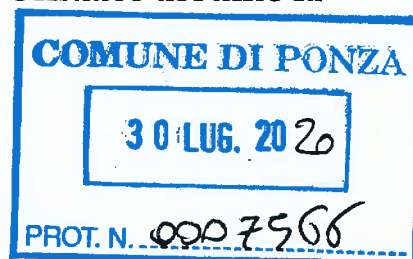 COMUNE DI PONZA
30 LUG. 2020
PROT. N. 0007566